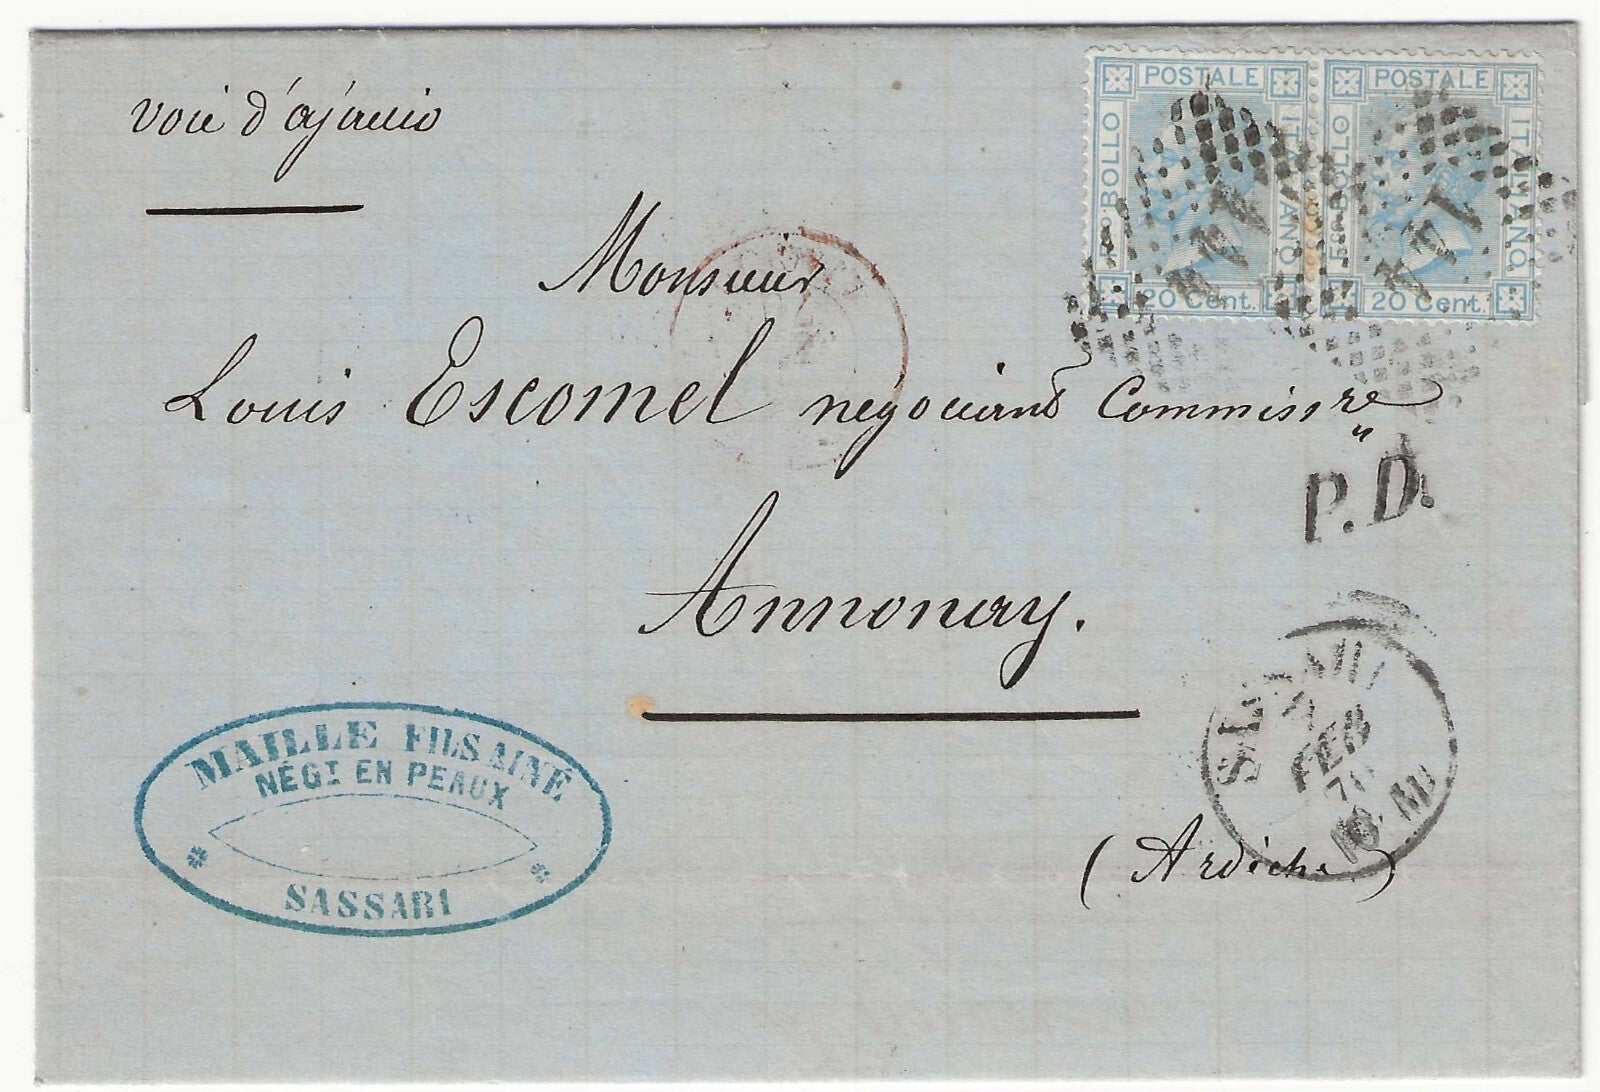 voie d'ajaccio
POSTALE
Fco BOLLO
ITALIANO
20 Cent.
POSTALE
Fco BOLLO
ITALIANO
20 Cent.
Monsieur
Louis Escomel négociant Commissre
P.D.
Annonay.
SASSARI
7
FEB
70
10 M
(Ardèche)
MAILLE FILS AINÉ
NÉGT EN PEAUX
SASSARI